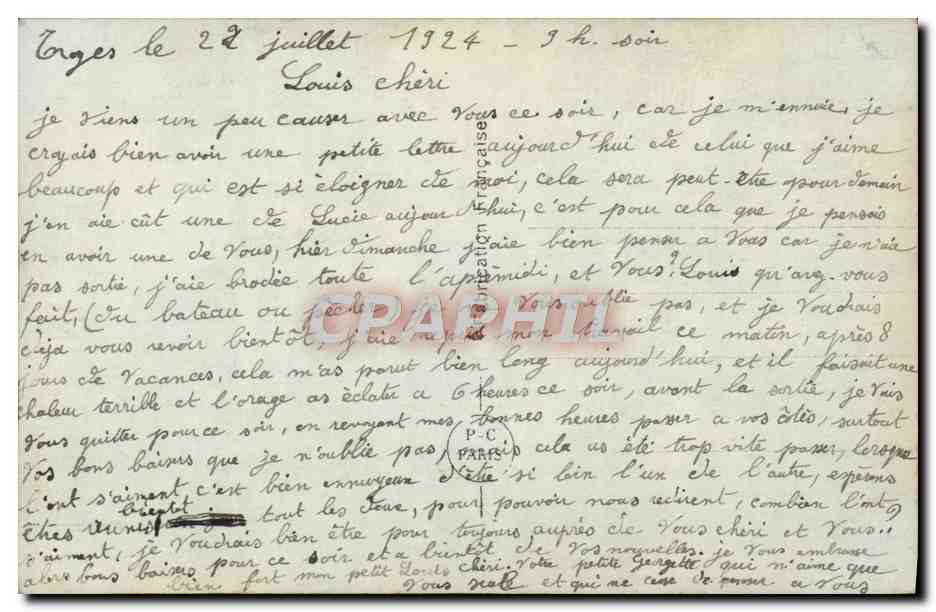 le 22 juillet 1924 - 9 h. soir
Louis chéri
je viens un peu causer avec Vous ce soir, car je m'ennuie, je
croyais bien avoir une petite lettre aujourd'hui de celui que j'aime
beaucoup et qui est si éloigner de moi, cela sera peut-être pour demain
j'en aie eût une de Lucie aujourd'hui, c'est pour cela que je pensais
en avoir une de Vous, hier dimanche j'aie bien penser a Vous car je n'aie
pas sortie, j'aie brodée toute l'aprèmidi, et Vous? Louis qu'avez-vous
fait, (du bateau ou pêcher) je ne Vous oublie pas, et je Voudrais
déja vous revoir bientôt, j'aie repris mon travail ce matin, après 8
jours de vacances, cela m'as parut bien long aujourd'hui, et il faisait une
chaleur terrible et l'orage as éclater a 6 heures ce soir, avant la sortie, je Vais
Vous quitter pour ce soir, en revoyant mes bonnes heures passer a vos côtés, surtout
Vos bons baisers que je n'oublie pas, mais cela as été trop vite passer, lorsque
l'ont s'aiment c'est bien ennuyeux d'être si loin l'un de l'autre, espérons
êtres réunis bientot tout les deux, pour pouvoir nous redirent, combien l'ont
s'aiment, je Voudrais bien être pour toujours auprès de Vous chéri et Vous..
alors bons baisers pour ce soir et a bientôt de Vos nouvelles. je Vous embrasse
bien fort mon petit Louis chéri. Votre petite Georgette qui n'aime que
Vous seul et qui ne cesse de penser a Vous
Fabrication Française
P-C
PARIS
CPAPHIL